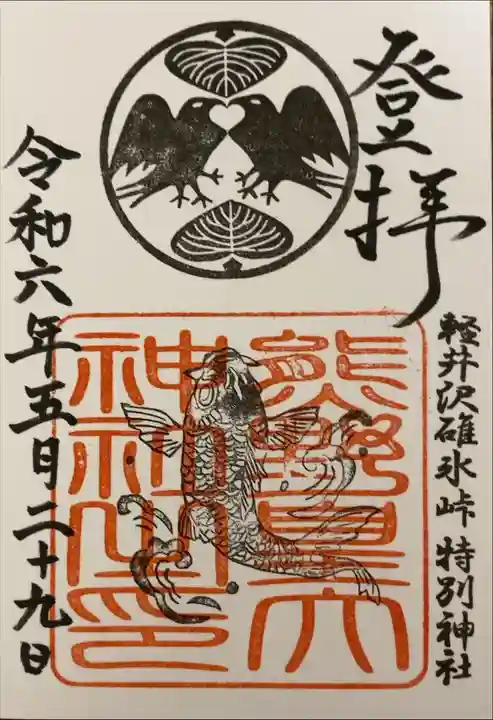 登拝
軽井沢碓氷峠 特別神社
熊野皇大
神社之印
令和六年五月二十九日